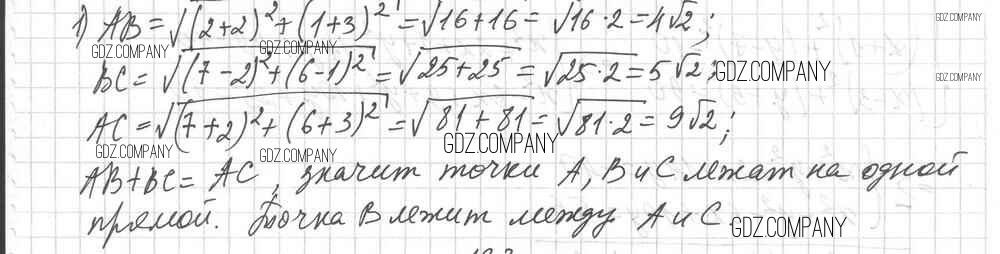 1) AB = √((2+2)² + (1+3)²) = √(16+16) = √(16·2) = 4√2;
GDZ.COMPANY
GDZ.COMPANY GDZ.COMPANY
BC = √((7−2)² + (6−1)²) = √(25+25) = √(25·2) = 5√2; GDZ.COMPANY
GDZ.COMPANY
AC = √((7+2)² + (6+3)²) = √(81+81) = √(81·2) = 9√2;
GDZ.COMPANY GDZ.COMPANY GDZ.COMPANY
AB+BC = AC, значит точки A, B и C лежат на одной
прямой. Точка B лежит между A и C. GDZ.COMPANY